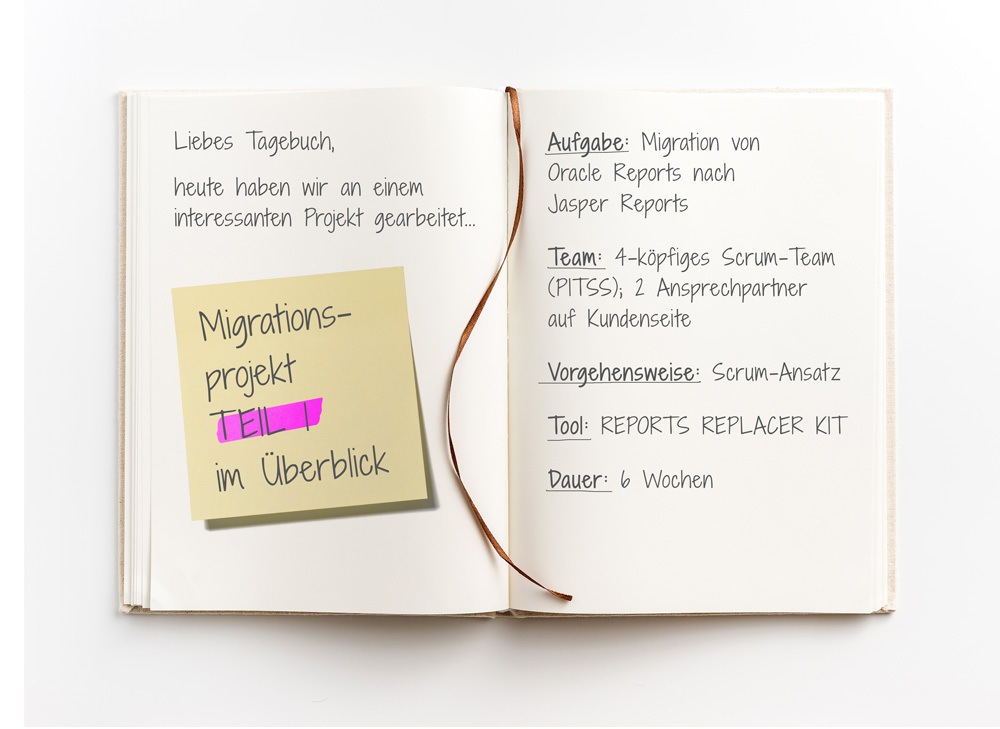 Liebes Tagebuch,
heute haben wir an einem
interessanten Projekt gearbeitet...
Migrations-
projekt
TEIL I
im Überblick
Aufgabe: Migration von
Oracle Reports nach
Jasper Reports
Team: 4-köpfiges Scrum-Team
(PITSS); 2 Ansprechpartner
auf Kundenseite
Vorgehensweise: Scrum-Ansatz
Tool: REPORTS REPLACER KIT
Dauer: 6 Wochen